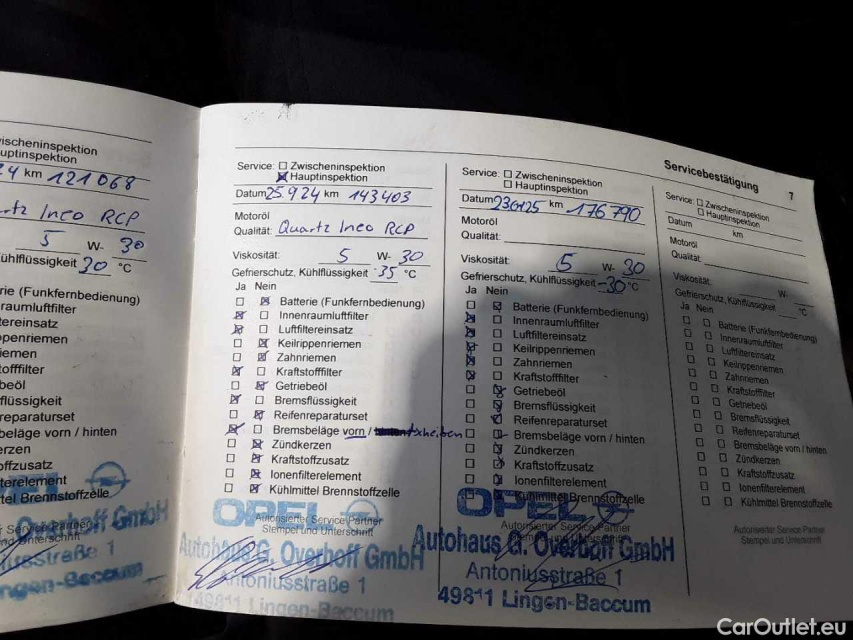 Servicebestätigung 7
wischeninspektion
uptinspektion
km 121068
rtz Ineo RCP
5 W- 30
ühlflüssigkeit 30 °C
rie (Funkfernbedienung)
nraumluftfilter
tereinsatz
ppenriemen
iemen
tofffilter
beöl
flüssigkeit
reparaturset
beläge vorn / hinten
erzen
offzusatz
nfilterelement
mittel Brennstoffzelle
r Service-Partner
nd Unterschrift
Overhoff GmbH
iusstraße 1
ngen-Baccum
Service: Zwischeninspektion
Hauptinspektion
Datum 25.9 24 km 143403
Motoröl
Qualität: Quartz Ineo RCP
Viskosität: 5 W- 30
Gefrierschutz, Kühlflüssigkeit -35 °C
Ja Nein
Batterie (Funkfernbedienung)
Innenraumluftfilter
Luftfiltereinsatz
Keilrippenriemen
Zahnriemen
Kraftstofffilter
Getriebeöl
Bremsflüssigkeit
Reifenreparaturset
Bremsbeläge vorn /
Zündkerzen
Kraftstoffzusatz
Ionenfilterelement
Kühlmittel Brennstoffzelle
OPEL
Autorisierter Service-Partner
Stempel und Unterschrift
Autohaus G. Overhoff GmbH
Antoniusstraße 1
49811 Lingen-Baccum
Service: Zwischeninspektion
Hauptinspektion
Datum km 176790
Motoröl
Qualität:
Viskosität: 5 W- 30
Gefrierschutz, Kühlflüssigkeit -30 °C
Ja Nein
Batterie (Funkfernbedienung)
Innenraumluftfilter
Luftfiltereinsatz
Keilrippenriemen
Zahnriemen
Kraftstofffilter
Getriebeöl
Bremsflüssigkeit
Reifenreparaturset
Bremsbeläge vorn / hinten
Zündkerzen
Kraftstoffzusatz
Ionenfilterelement
Kühlmittel Brennstoffzelle
OPEL
Autorisierter Service-Partner
Autohaus G. Overhoff GmbH
Antoniusstraße 1
49811 Lingen-Baccum
Service: Zwischeninspektion
Hauptinspektion
Datum km
Motoröl
Qualität:
Viskosität: W-
Gefrierschutz, Kühlflüssigkeit °C
Ja Nein
Batterie (Funkfernbedienung)
Innenraumluftfilter
Luftfiltereinsatz
Keilrippenriemen
Zahnriemen
Kraftstofffilter
Getriebeöl
Bremsflüssigkeit
Reifenreparaturset
Bremsbeläge vorn / hinten
Zündkerzen
Kraftstoffzusatz
Ionenfilterelement
Kühlmittel Brennstoffzelle
Autorisierter Service-Partner
Stempel und Unterschrift
CarOutlet.eu